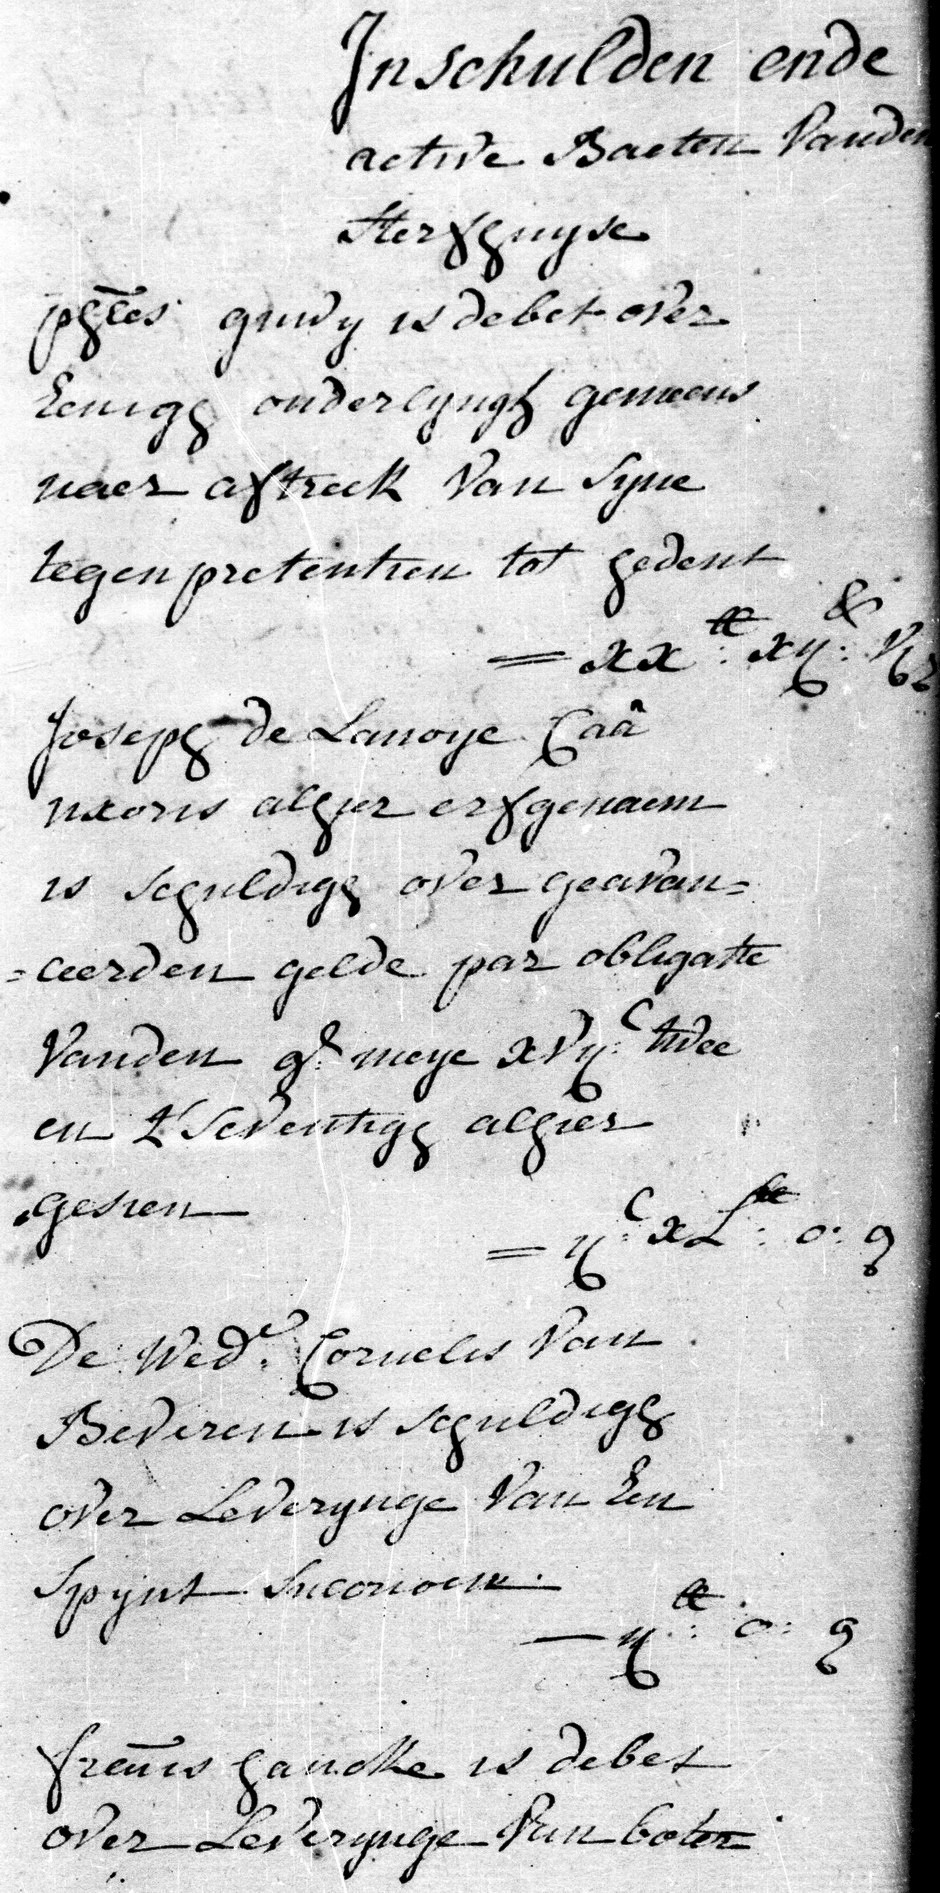 Jnschulden ende
active Baeten Vanden
sterfhuyse
phles guwy is debet over
Eenigh onderlyngh gemeens
naer aftreck Van syne
tegenpretentien tot hedent
= xx lb: xij: ß
Joseph de Lanoye Caâ
uxoris alhier erfgenaem
is schuldigh over geavan=
=ceerden gelde par obligatie
Vanden 9e meye xvij:C twee
en t'seventigh alhier
gesien
= ij:C xL lb: 0: 9
De Wed:e Cornelis Van
Beveren is schuldigh
over Leverynge Van Een
spynt
— ij lb: 0: 9
frañis hancke is debet
over Leverynge Van boter